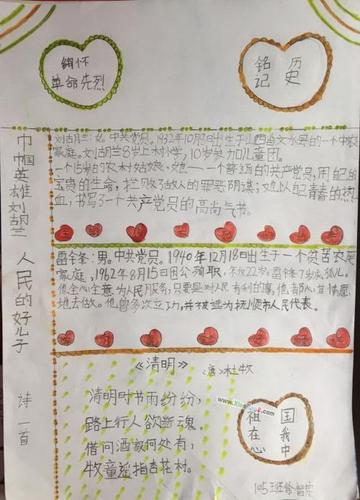 缅怀
革命先烈
铭 历
记 史
巾帼英雄刘胡兰
刘胡兰:女,中共党员。1932年10月8日出生于山西省文水县的一个中农
家庭。刘胡兰8岁上村小学,10岁参加儿童团。
一个15岁的农村姑娘、一个普通的共产党员,用自己的
宝贵的生命,拦败了敌人的罪恶阴谋;她以己青春的热
血,书写了一个共产党员的高尚气节。
人民的好儿子
雷锋:男。中共党员。1940年12月18日出生于一个贫苦农民
家庭,1962年8月15日因公殉职,年仅22岁。雷锋7岁成孤儿。
他全心全意为人民服务,只要是对人民有利的事,他都心甘情愿
地去做。他曾多次立功,并被选为抚顺市人民代表。
诗一首
《清明》
唐:杜牧
清明时节雨纷纷,
路上行人欲断魂。
借问酒家何处有,
牧童遥指杏花村。
祖 国
在 我
心 中